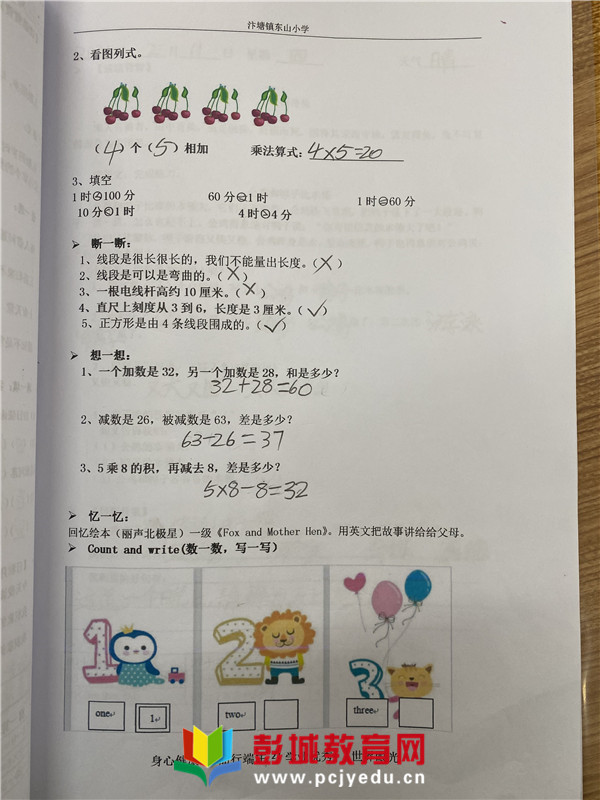 汴塘镇东山小学
2、看图列式。
(4)个(5)相加 乘法算式:4×5=20
3、填空
1时<100分 60分=1时 1时=60分
10分<1时 4时>4分
➢ 断一断:
1、线段是很长很长的,我们不能量出长度。(×)
2、线段是可以是弯曲的。(×)
3、一根电线杆高约10厘米。(×)
4、直尺上刻度从3到6,长度是3厘米。(✓)
5、正方形是由4条线段围成的。(✓)
➢ 想一想:
1、一个加数是32,另一个加数是28,和是多少?
32+28=60
2、减数是26,被减数是63,差是多少?
63-26=37
3、5乘8的积,再减去8,差是多少?
5×8-8=32
➢ 忆一忆:
回忆绘本(丽声北极星)一级《Fox and Mother Hen》。用英文把故事讲给给父母。
➢ Count and write(数一数,写一写)
1 2 3
one 1 two three
身心健
彭城教育网
www.pcjyedu.cn